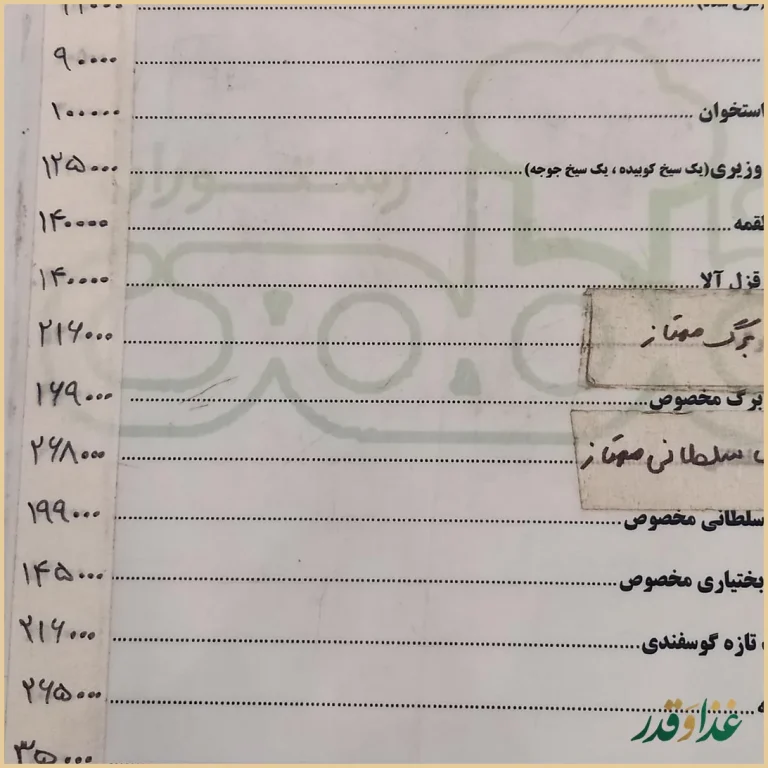 ۹۰۰۰۰
استخوان ۱۰۰۰۰۰
وزیری(یک سیخ کوبیده ، یک سیخ جوجه) ۱۲۵۰۰۰
لقمه ۱۴۰۰۰۰
قزل آلا ۱۴۰۰۰۰
برگ ممتاز ۲۱۶۰۰۰
برگ مخصوص ۱۶۹۰۰۰
سلطانی ممتاز ۲۶۸۰۰۰
سلطانی مخصوص ۱۹۹۰۰۰
بختیاری مخصوص ۱۴۵۰۰۰
تازه گوسفندی ۲۱۶۰۰۰
۲۶۵۰۰۰
۳۵۰۰۰
رستوران
غذا و قدر